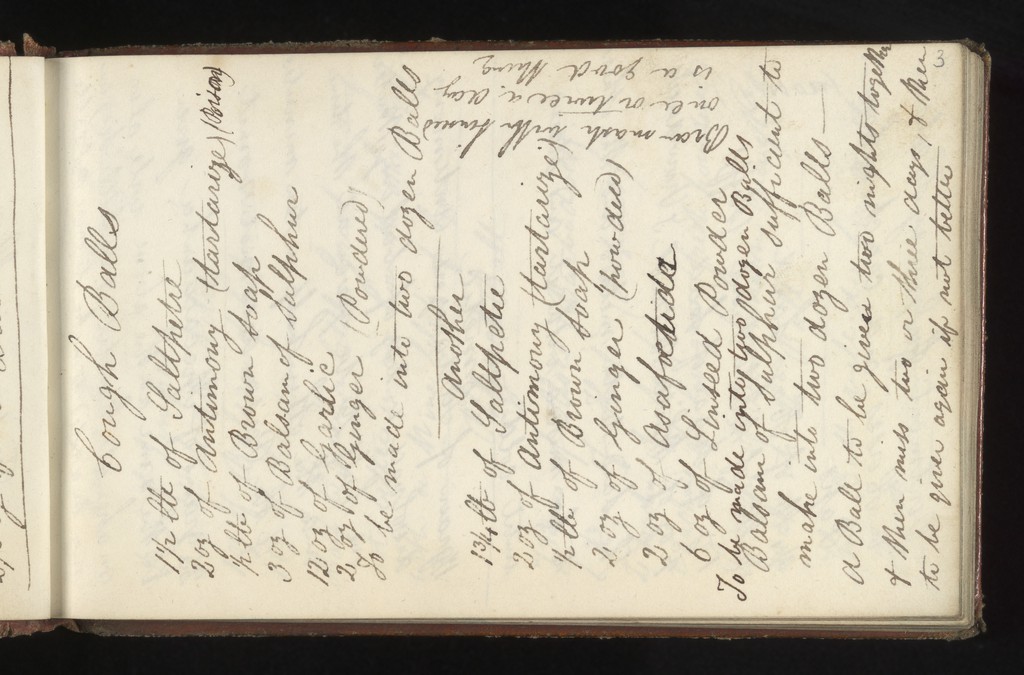 3
Cough Balls
1½ lb of Saltpetre
2 oz of Antimony (tartarize)
½ lb of Brown Soap
3 oz of Balsam of Sulphur
12 oz of Garlic
2 oz of Ginger (Powdered)
To be made into two dozen Balls
Another
1¾ lb of Saltpetre
2 oz of Antimony (tartarize)
½ lb of Brown Soap
2 oz of Ginger (powdered)
2 oz of Asafoetida
6 oz of Linseed Powder
To be made into two dozen Balls
Balsam of Sulphur sufficient to
make into two dozen Balls
A Ball to be given two nights together
& then miss two or three days, & then
to be given again if not better
Bran mash with linseed
once or twice a day
is a good thing